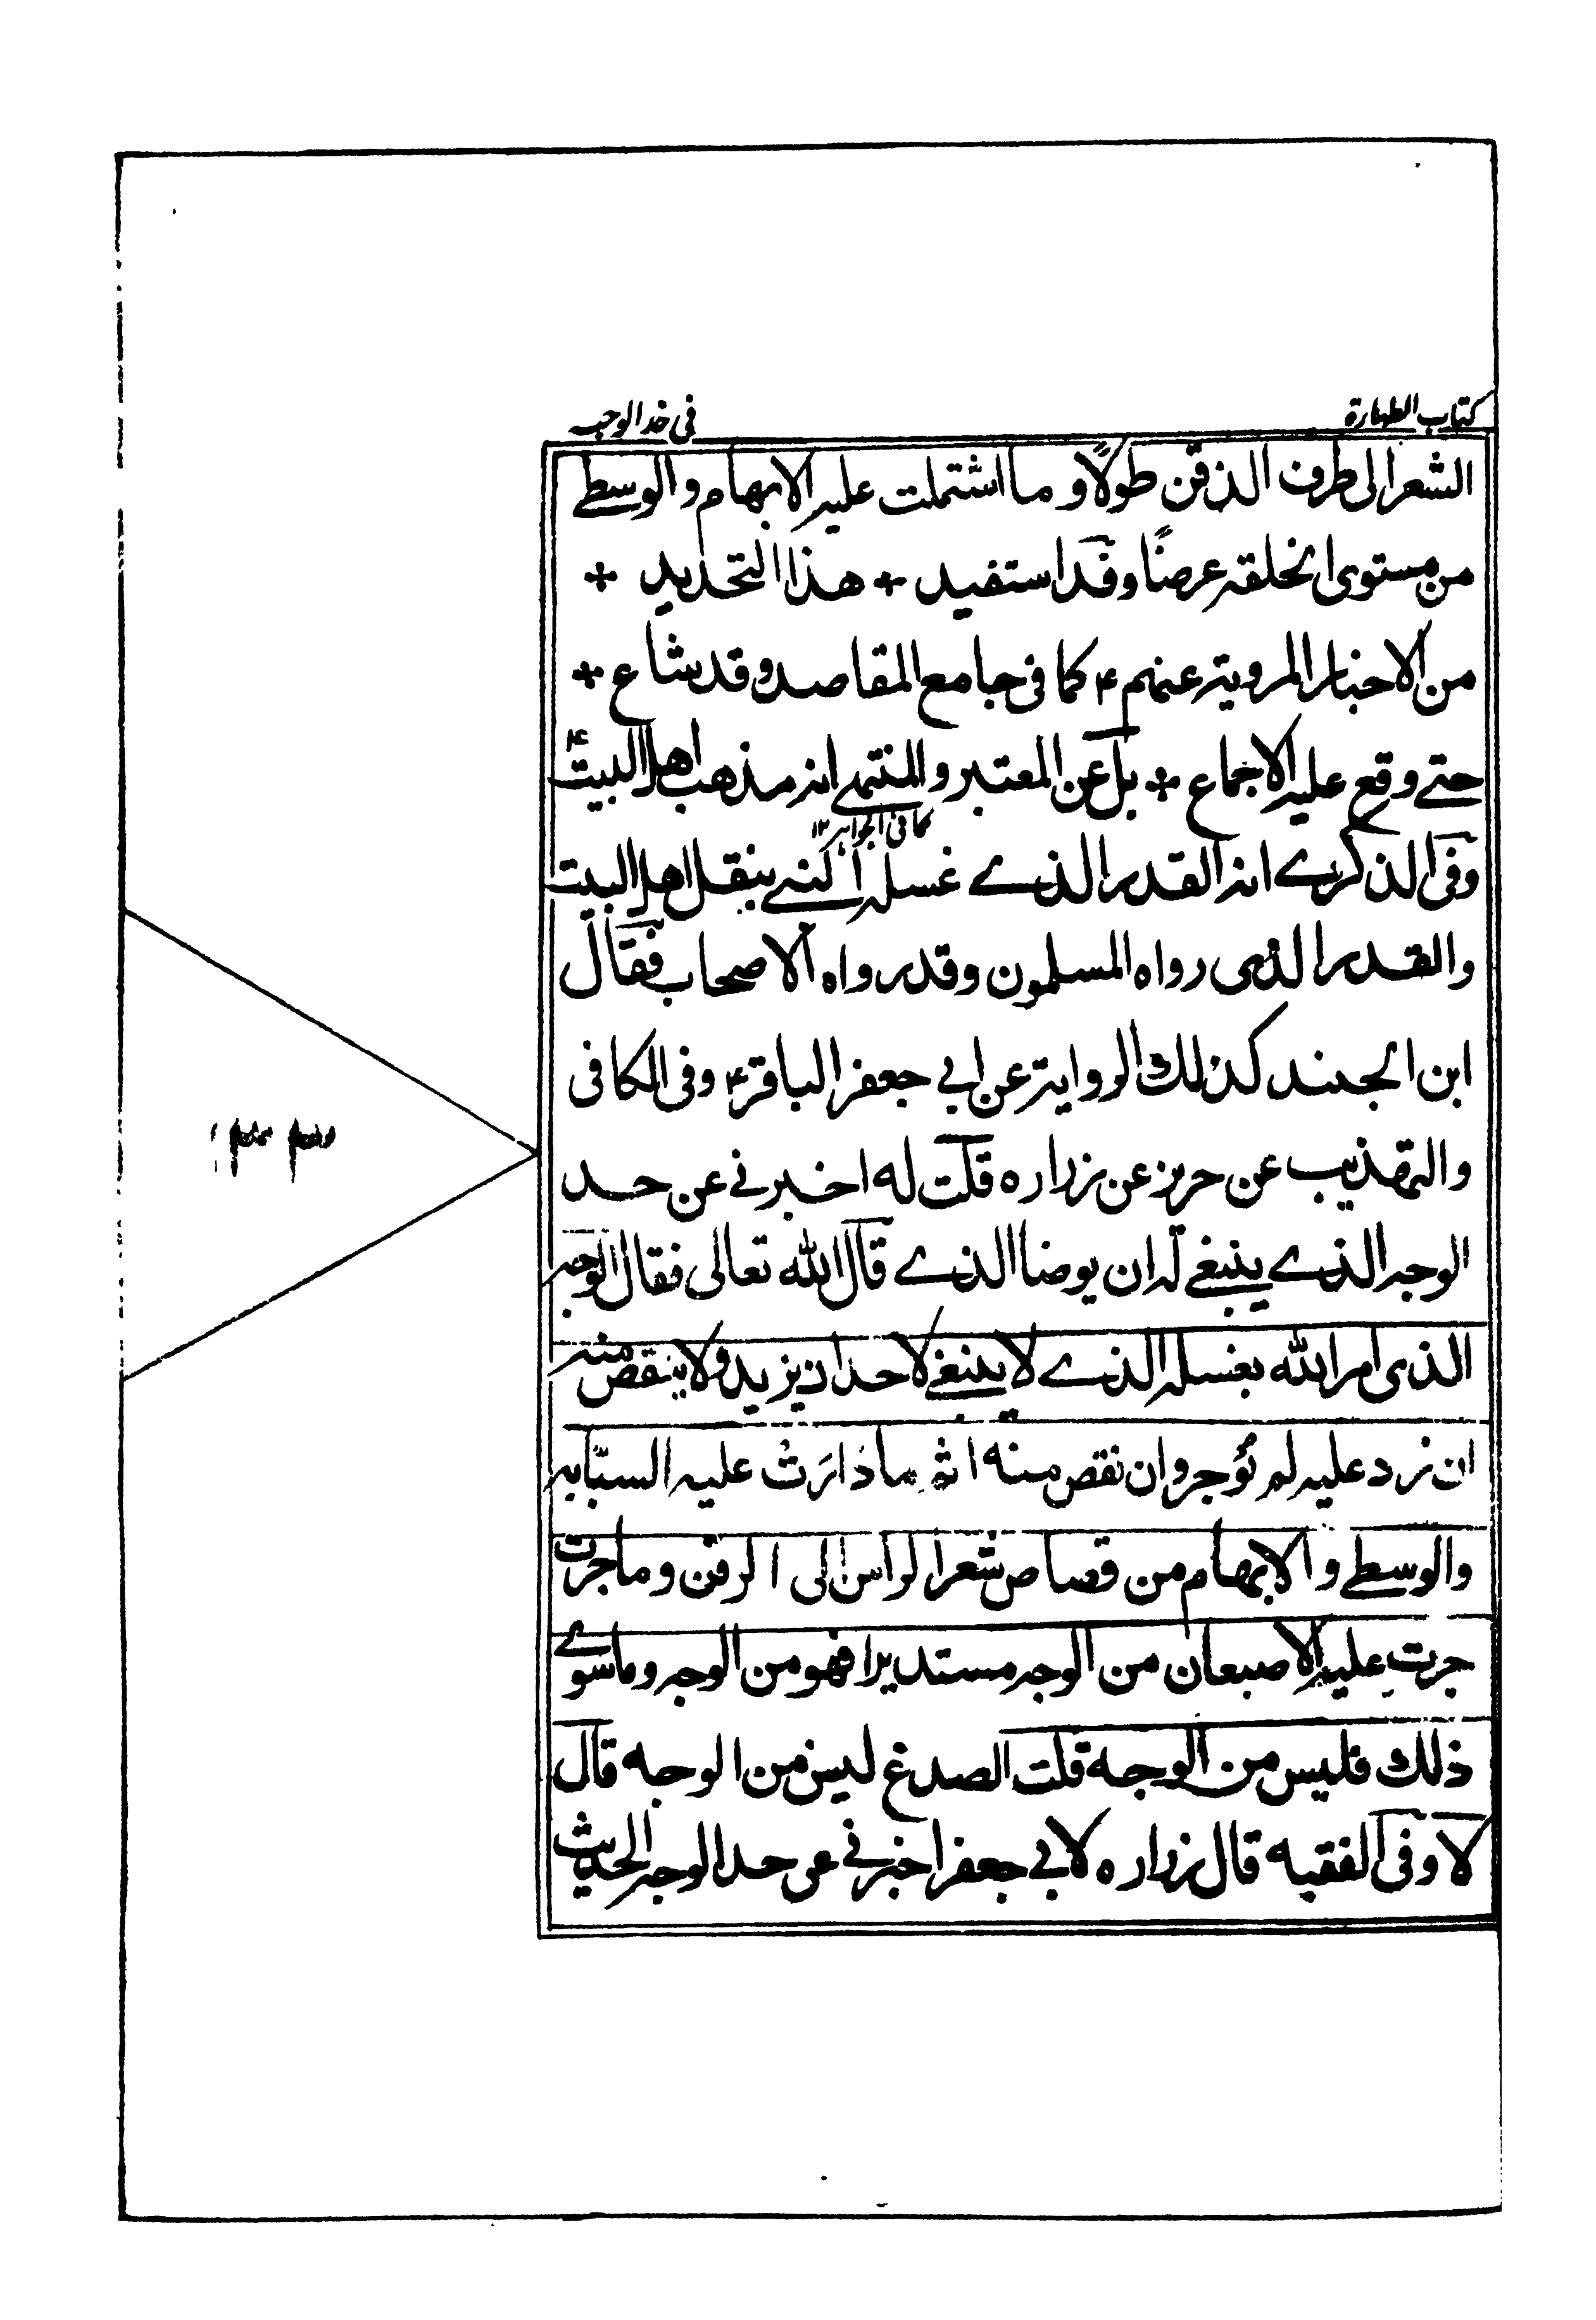 كتاب الطهارة
فى حد الوجه
الشعر الى طرف الذقن طولًا و ما اشتملت عليه الابهام و الوسطے
من مستوى الخلقه عرضًا وقد استفيد * هذا التحديد *
من الاخبار المروية عنهم ۴ كما فى جامع المقاصد وقد شاع *
حتے وقع عليه الاجماع * بل عن المعتبر و المنتهى انه مذهب اهل البيت ۴
كما فى الجواهر ۱۲
وفى الذكرے انه القدر الذے غسله النبے بنقل اهل البيت
والقدر الذى رواه المسلمون وقد رواه الاصحاب فقال
ابن الجنيد كذلك الرواية عن ابي جعفر الباقر ۴ وفى الكافى
والتهذيب عن حريز عن زراره قلت له اخبرنے عن حد
الوجه الذے ينبغے له ان يوضا الذے قال الله تعالى فقال الوجه
الذى امر الله بغسله الذے لا ينبغے لاحد ان يزيد ولا ينقص منه
ان زد عليه لم يُوجر وان نقص منه اثم ما دَارَتْ عليه السبّابه
والوسطے و الابهام من قصاص شعر الراس الى الذقن و ما جرت
جرت عليه الاصبعان من الوجه مستديرا فهو من الوجه وما سوے
ذلك فليس من الوجه قلت الصدغ ليس من الوجه قال
لا وفى الفقيه قال زراره لابي جعفر اخبرنے عن حد الوجه الحديث